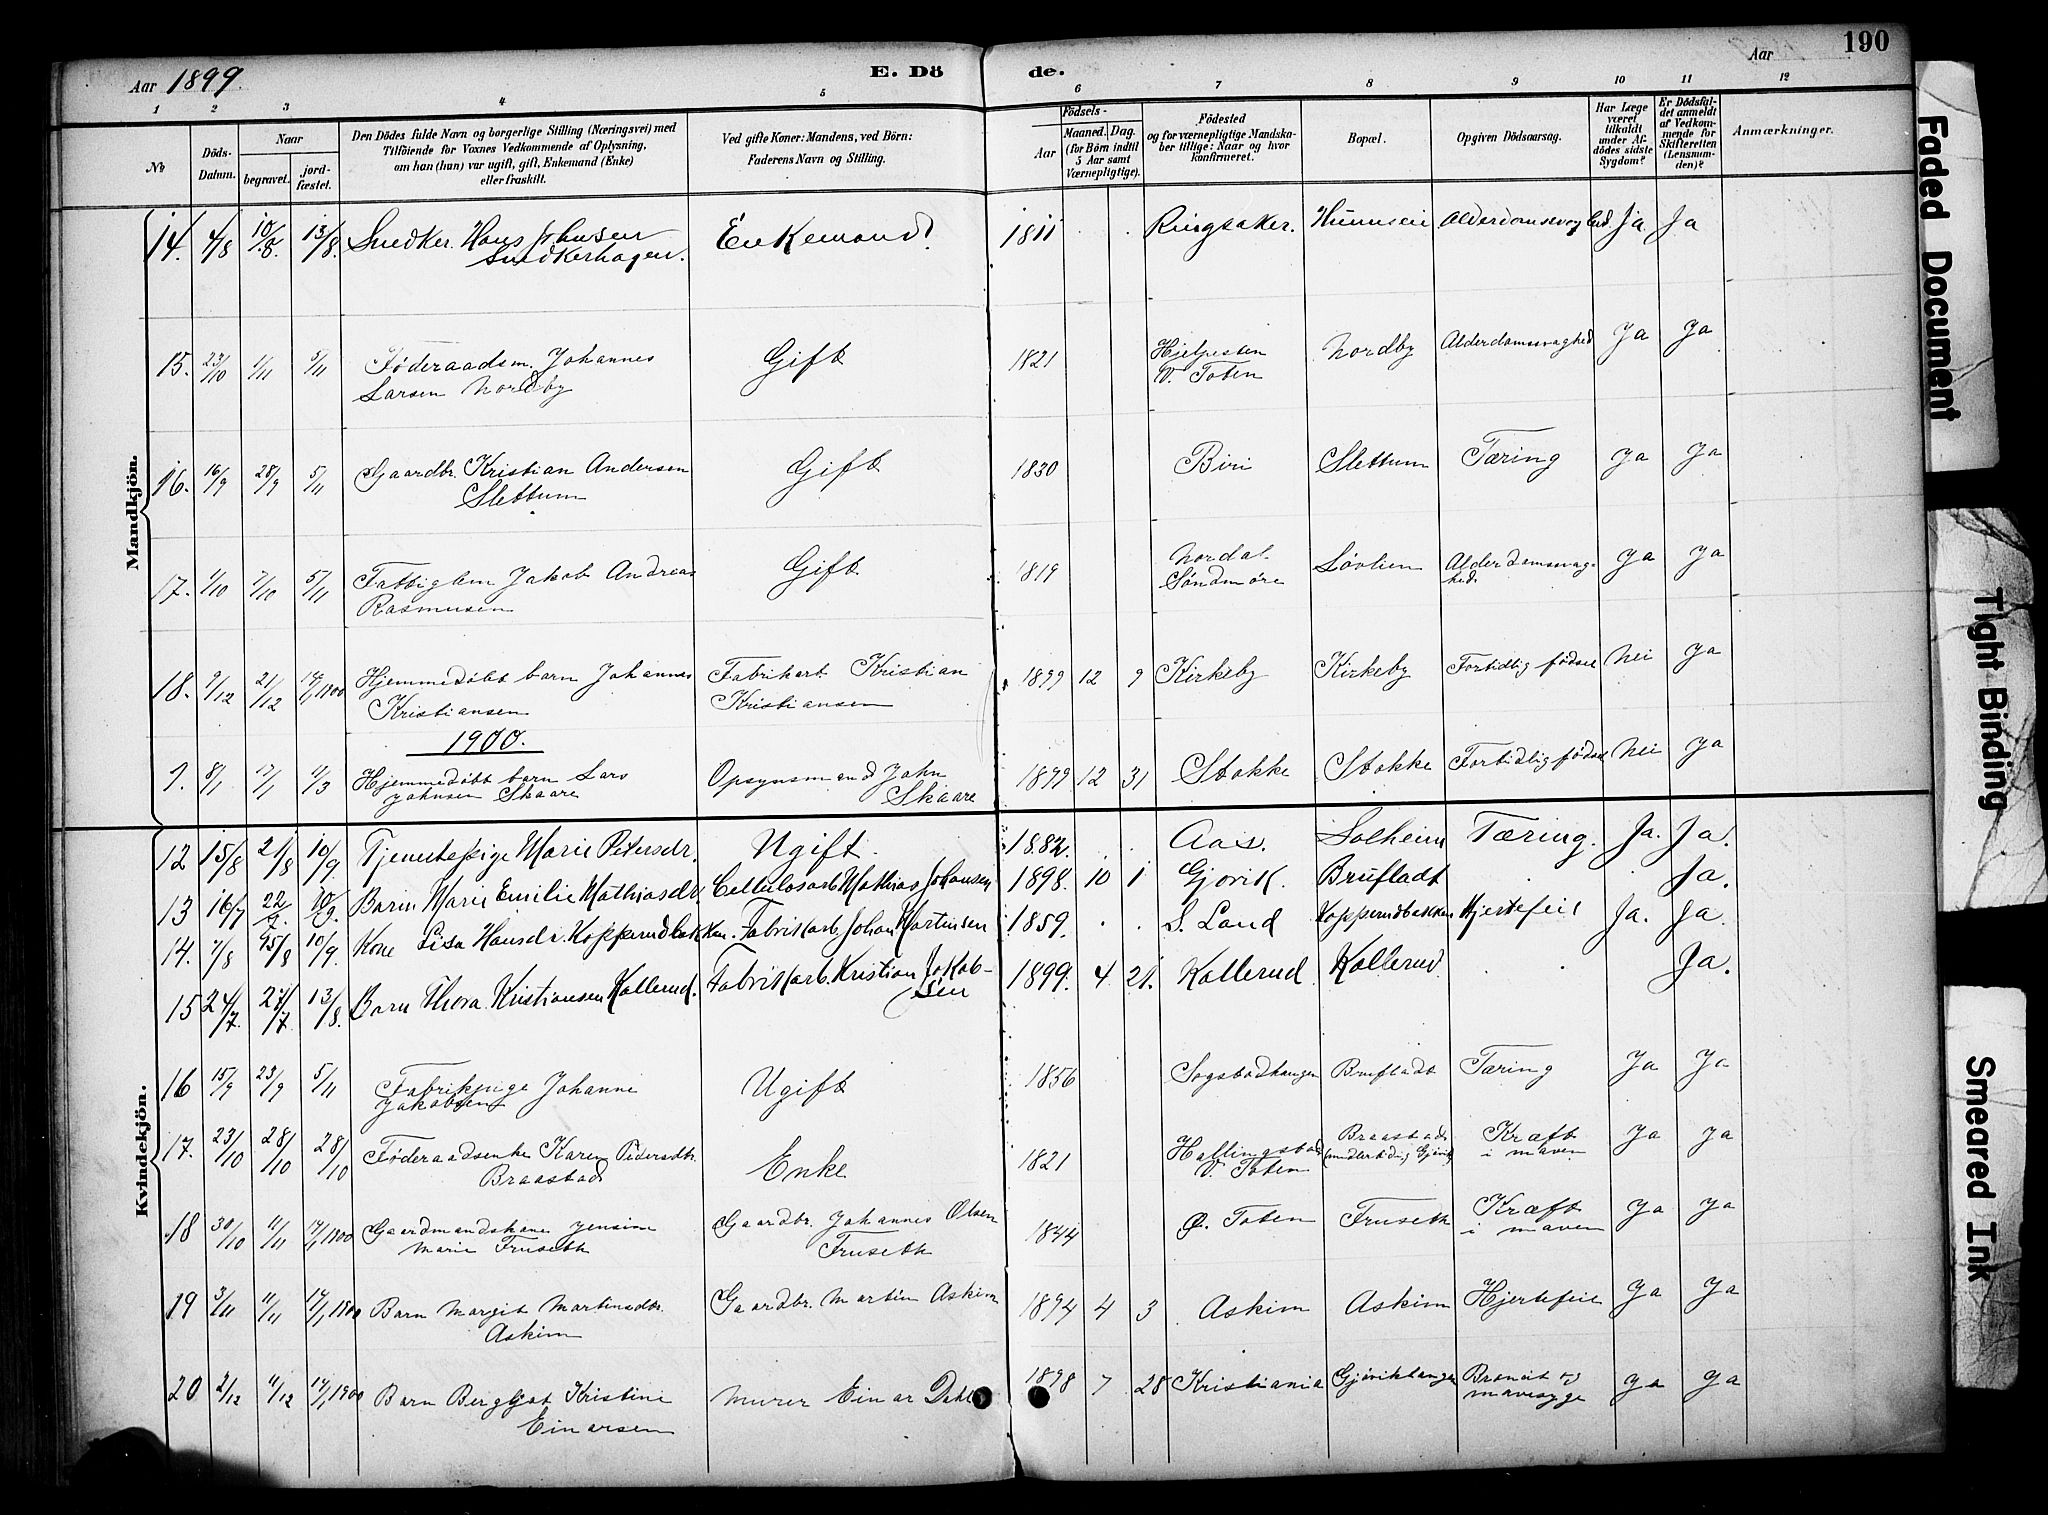 Aar 1899.
E. Dö
de.
Aar
190
1 2 3 4 5 6 7 8 9 10 11 12
No
Döds-Datum.
Naar
begravet.
jord-fæstet.
Den Dödes fulde Navn og borgerlige Stilling (Næringsvei) med
Tilföiende for Voxnes Vedkommende af Oplysning,
om han (hun) var ugift, gift, Enkemand (Enke)
eller fraskilt.
Ved gifte Koner: Mandens, ved Börn:
Faderens Navn og Stilling.
Födsels-
Aar
Maaned. Dag.
(for Börn indtil
5 Aar samt
Værnepligtige).
Födested
og for værnepligtige Mandska-
ber tillige: Naar og hvor
konfirmeret.
Bopæl.
Opgiven Dödsaarsag.
Har Læge
været
tilkaldt
under Af-
dödes sidste
Sygdom?
Er Dödsfal-
det anmeldt
af Vedkom-
mende for
Skifteretten
(Lensman-
den)?
Anmærkninger.
Mandkjön.
14. 4/8 10/8. 13/8. Snedker. Hans Johnsen Enkemand. 1811 . . Ringsaker. Hunnseie Alderdomsvaghed Ja. Ja
Snedkerhagen.
15. 23/10 1/11 5/11 Føderaadsm. Johannes Gift 1821 Hjelpesten Nordby Alderdomssvaghed Ja Ja
Larsen Nordby V. Toten
16. 16/9 28/9 5/11 Gaardbr. Kristian Andersen Gift 1830 Biri Slettum Tæring Ja Ja
Slettum
17. 1/10 7/10 5/11 Fattiglem Jakob Andreas Gift 1819 Nordal Løvlien Alderdomssvag- Ja Ja
Rasmusen Søndmøre hed.
18. 9/12 21/12 14/1 1900 Hjemmedøbt barn Johannes Fabrikarb. Kristian 1899 12 9 Kirkeby Kirkeby Fortidlig fødsel Nei Ja
Kristiansen Kristiansen
1900.
1. 8/1 17/1 4/3 Hjemmedøbt barn Lars Opsynsmand John 1899 12 31 Stokke Stokke Fortidlig fødsel Nei Ja
Johnsen Skaare Skaare
Kvindekjön.
12 15/8 21/8 10/9 Tjenestepige Marie Petersdr. Ugift. 1882. . . Aas. Solheim Tæring. Ja. Ja.
13 16/7 22/7. 10/9. Barn Marie Emilie Mathiasdr. Cellulosarb. Mathias Johansen 1898. 10 1 Gjøvik. Brufladt Ja.
14. 7/8 15/8 10/9. Kone Lisa Hansdr. Kopperudbakken. Fabrikarb. Johan Martinsen 1859. . . S. Land Kopperudbakken Hjertefeil Ja. Ja.
15 24/7. 27/7 13/8. Barn Thora Kristiansen Kallerud. Fabrikarb. Kristian Jakob- 1899. 4 21. Kallerud Kallerud . . Ja.
sen
16 15/9 23/9 5/11 Fabrikpige Johanne Ugift 1856 Sogstadhaugen Brufladt Tæring Ja Ja
Jakobsen
17. 23/10 28/10 28/10 Føderaadsenke Karen Pedersdtr. Enke 1821 Hallingstad Braastad Kræft Ja Ja
Braastad V. Toten (midlertidig Gjøvik) i maven
18 30/10 11/11 14/1 1900 Gaardmandskone Jensine Gaardbr. Johannes Olsen 1844 Ø. Toten Fruseth Kræft Ja Ja
Marie Fruseth Fruseth i maven
19 3/11 11/11 14/1 1900 Barn Margit Martinsdtr. Gaardbr. Martin Askim 1894 4 3 Askim Askim Hjertefeil Ja Ja
Askim
20 2/12 11/12 14/1 1900 Barn Bergljot Kristine Murer Einar Dahl 1898 7 28 Kristiania Ja Ja
Einarsen mavesyge
Faded Document
Tight Binding
Smeared Ink